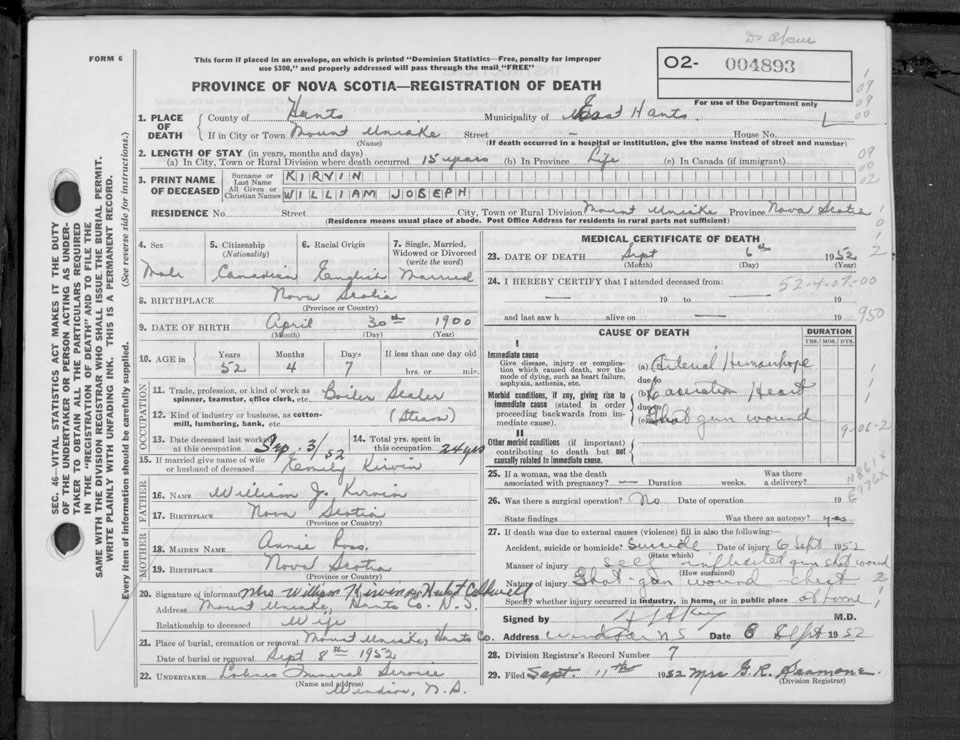 FORM 6
This form if placed in an envelope, on which is printed "Dominion Statistics—Free, penalty for improper
use $300," and properly addressed will pass through the mail "FREE"
O2- 004893
For use of the Department only
PROVINCE OF NOVA SCOTIA—REGISTRATION OF DEATH
1. PLACE OF DEATH
County of Hants Municipality of East Hants
If in City or Town Mount Uniake Street — House No.
(Name) (If death occurred in a hospital or institution, give the name instead of street and number)
2. LENGTH OF STAY (in years, months and days)
(a) In City, Town or Rural Division where death occurred 15 years (b) In Province Life (c) In Canada (if immigrant)
3. PRINT NAME OF DECEASED
Surname or Last Name KIRVIN
All Given or Christian Names WILLIAM JOSEPH
RESIDENCE No. Street City, Town or Rural Division Mount Uniake Province Nova Scotia
(Residence means usual place of abode. Post Office Address for residents in rural parts not sufficient)
4. Sex 5. Citizenship (Nationality) 6. Racial Origin 7. Single, Married, Widowed or Divorced (write the word)
Male Canadian English Married
8. BIRTHPLACE Nova Scotia
(Province or Country)
9. DATE OF BIRTH April 30th 1900
(Month) (Day) (Year)
10. AGE in Years Months Days If less than one day old
52 4 7 hrs. or min.
OCCUPATION
11. Trade, profession, or kind of work as spinner, teamster, office clerk, etc. Boiler
12. Kind of industry or business, as cotton-mill, lumbering, bank, etc. (Steam)
13. Date deceased last worked at this occupation Sep. 3/52 14. Total yrs. spent in this occupation 24 yrs
15. If married give name of wife or husband of deceased Emily Kirvin
FATHER
16. NAME William J. Kirvin
17. BIRTHPLACE Nova Scotia
(Province or Country)
MOTHER
18. MAIDEN NAME Annie Ross.
19. BIRTHPLACE Nova Scotia
(Province or Country)
20. Signature of informant Mrs William Kirvin
Address Mount Uniake, Hants Co. N.S.
Relationship to deceased Wife
21. Place of burial, cremation or removal Mount Uniake, Hants Co.
Date of burial or removal Sept 8th 1952
22. UNDERTAKER Funeral Service
(Name and address) Windsor, N.S.
MEDICAL CERTIFICATE OF DEATH
23. DATE OF DEATH Sept 6th 1952
(Month) (Day) (Year)
24. I HEREBY CERTIFY that I attended deceased from: 52-4-07-00
— 19 to — 19
and last saw h alive on — 19
950
CAUSE OF DEATH DURATION
YRS. MOS. DYS.
I
Immediate cause
Give disease, injury or complication which caused death, NOT the mode of dying, such as heart failure, asphyxia, asthenia, etc.
(a) Arterial Hemorrhage
due to
Morbid conditions, if any, giving rise to immediate cause (stated in order proceeding backwards from immediate cause).
(b) Laceration Heart
due to
(c) Shot gun wound
II
Other morbid conditions (if important) contributing to death but not causally related to immediate cause.
25. If a woman, was the death associated with pregnancy? — Duration weeks. Was there a delivery?
26. Was there a surgical operation? No Date of operation 19
State findings Was there an autopsy? yes
27. If death was due to external causes (violence) fill in also the following:
Accident, suicide or homicide? Suicide Date of injury 6 Sept 1952
(State which)
Manner of injury self inflicted gun shot wound
(How sustained)
Nature of injury Shot-gun wound - chest
Specify whether injury occurred in industry, in home, or in public place at home
Signed by M.D.
Address Windsor N S Date 8 Sept 1952
28. Division Registrar's Record Number 7
29. Filed Sept. 11th 1952 Mrs G. R. Seamone.
(Division Registrar)
SEC. 46—VITAL STATISTICS ACT MAKES IT THE DUTY
OF THE UNDERTAKER OR PERSON ACTING AS UNDERTAKER TO OBTAIN ALL THE PARTICULARS REQUIRED
IN THE "REGISTRATION OF DEATH" AND TO FILE THE
SAME WITH THE DIVISION REGISTRAR WHO SHALL ISSUE THE BURIAL PERMIT.
WRITE PLAINLY WITH UNFADING INK. THIS IS A PERMANENT RECORD.
Every item of information should be carefully supplied. (See reverse side for instructions.)